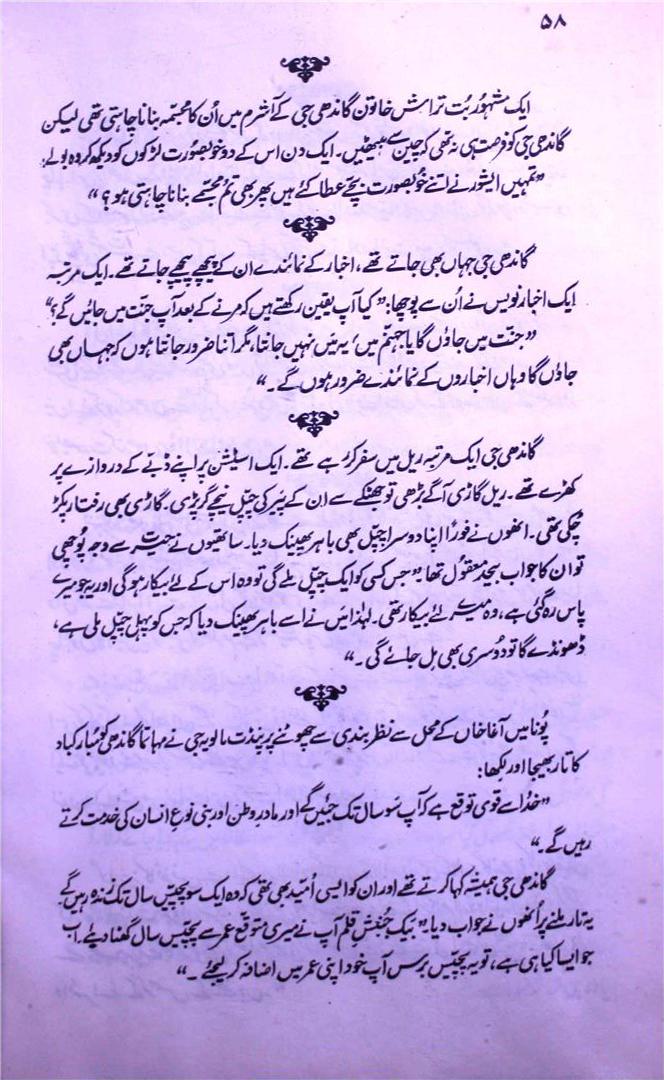 ۵۸
ایک مشہور بُت تراش خاتون گاندھی جی کے آشرم میں اُن کا مجسّمہ بنانا چاہتی تھی لیکن
گاندھی جی کو فرصت ہی نہ تھی کہ چین سے بیٹھیں۔ ایک دن اس کے دو خوبصورت لڑکوں کو دیکھ کر وہ بولے:
”تمہیں ایشور نے اتنے خوُبصورت بچّے عطا کئے ہیں پھر بھی تم مجسّمے بنانا چاہتی ہو؟“
گاندھی جی جہاں بھی جاتے تھے، اخبار کے نمائندے ان کے پیچھے پیچھے جاتے تھے۔ ایک مرتبہ
ایک اخبار نویس نے اُن سے پوچھا: ”کیا آپ یقین رکھتے ہیں کہ مرنے کے بعد آپ جنّت میں جائیں گے؟“
”جنّت میں جاؤں گا یا جہنّم میں، یہ مَیں نہیں جانتا، مگر اتنا ضرور جانتا ہوں کہ جہاں بھی
جاؤں گا وہاں اخباروں کے نمائندے ضرور ہوں گے۔“
گاندھی جی ایک مرتبہ ریل میں سفر کر رہے تھے۔ ایک اسٹیشن پر اپنے ڈبّے کے دروازے پر
کھڑے تھے۔ ریل گاڑی آگے بڑھی تو جھٹکے سے ان کے پَیر کی چپّل نیچے گر پڑی۔ گاڑی بھی رفتار پکڑ
چُکی تھی۔ انھوں نے فورًا اپنا دوسرا چپّل بھی باہر پھینک دیا۔ ساتھیوں نے حیرت سے وجہ پُوچھی
تو ان کا جواب بیحد معقول تھا ”جس کسی کو ایک چپّل ملے گی تو وہ اس کے لئے بیکار ہوگی اور یہ جو میرے
پاس رہ گئی ہے، وہ میرے لئے بیکار تھی۔ لہٰذا مَیں نے اسے باہر پھینک دیا کہ جس کو پہلی چپّل ملی ہے،
ڈھونڈے گا تو دوُسری بھی مل جائے گی۔“
پُونا میں آغا خاں کے محل سے نظر بندی سے چھوٹنے پر پنڈت مالویہ جی نے مہاتما گاندھی کو مُبارکباد
کا تار بھیجا اور لکھا:
”خدُا سے قوی توقع ہے کہ آپ سَو سال تک جئیں گے اور مادرِ وطن اور بنی نوعِ انسان کی خدمت کرتے
رہیں گے۔“
گاندھی جی ہمیشہ کہا کرتے تھے اور ان کو ایسی اُمّید بھی تھی کہ وہ ایک سو پچیّس سال تک زندہ رہیں گے۔
یہ تار ملنے پر اُنھوں نے جواب دیا: ”بیک جُنبشِ قلم آپ نے میری متوقع عمر سے پچیّس سال گھٹا دیئے۔ اب
جو ایسا کیا ہی ہے، تو یہ پچیّس برس آپ خود اپنی عمر میں اضافہ کر لیجئے۔“